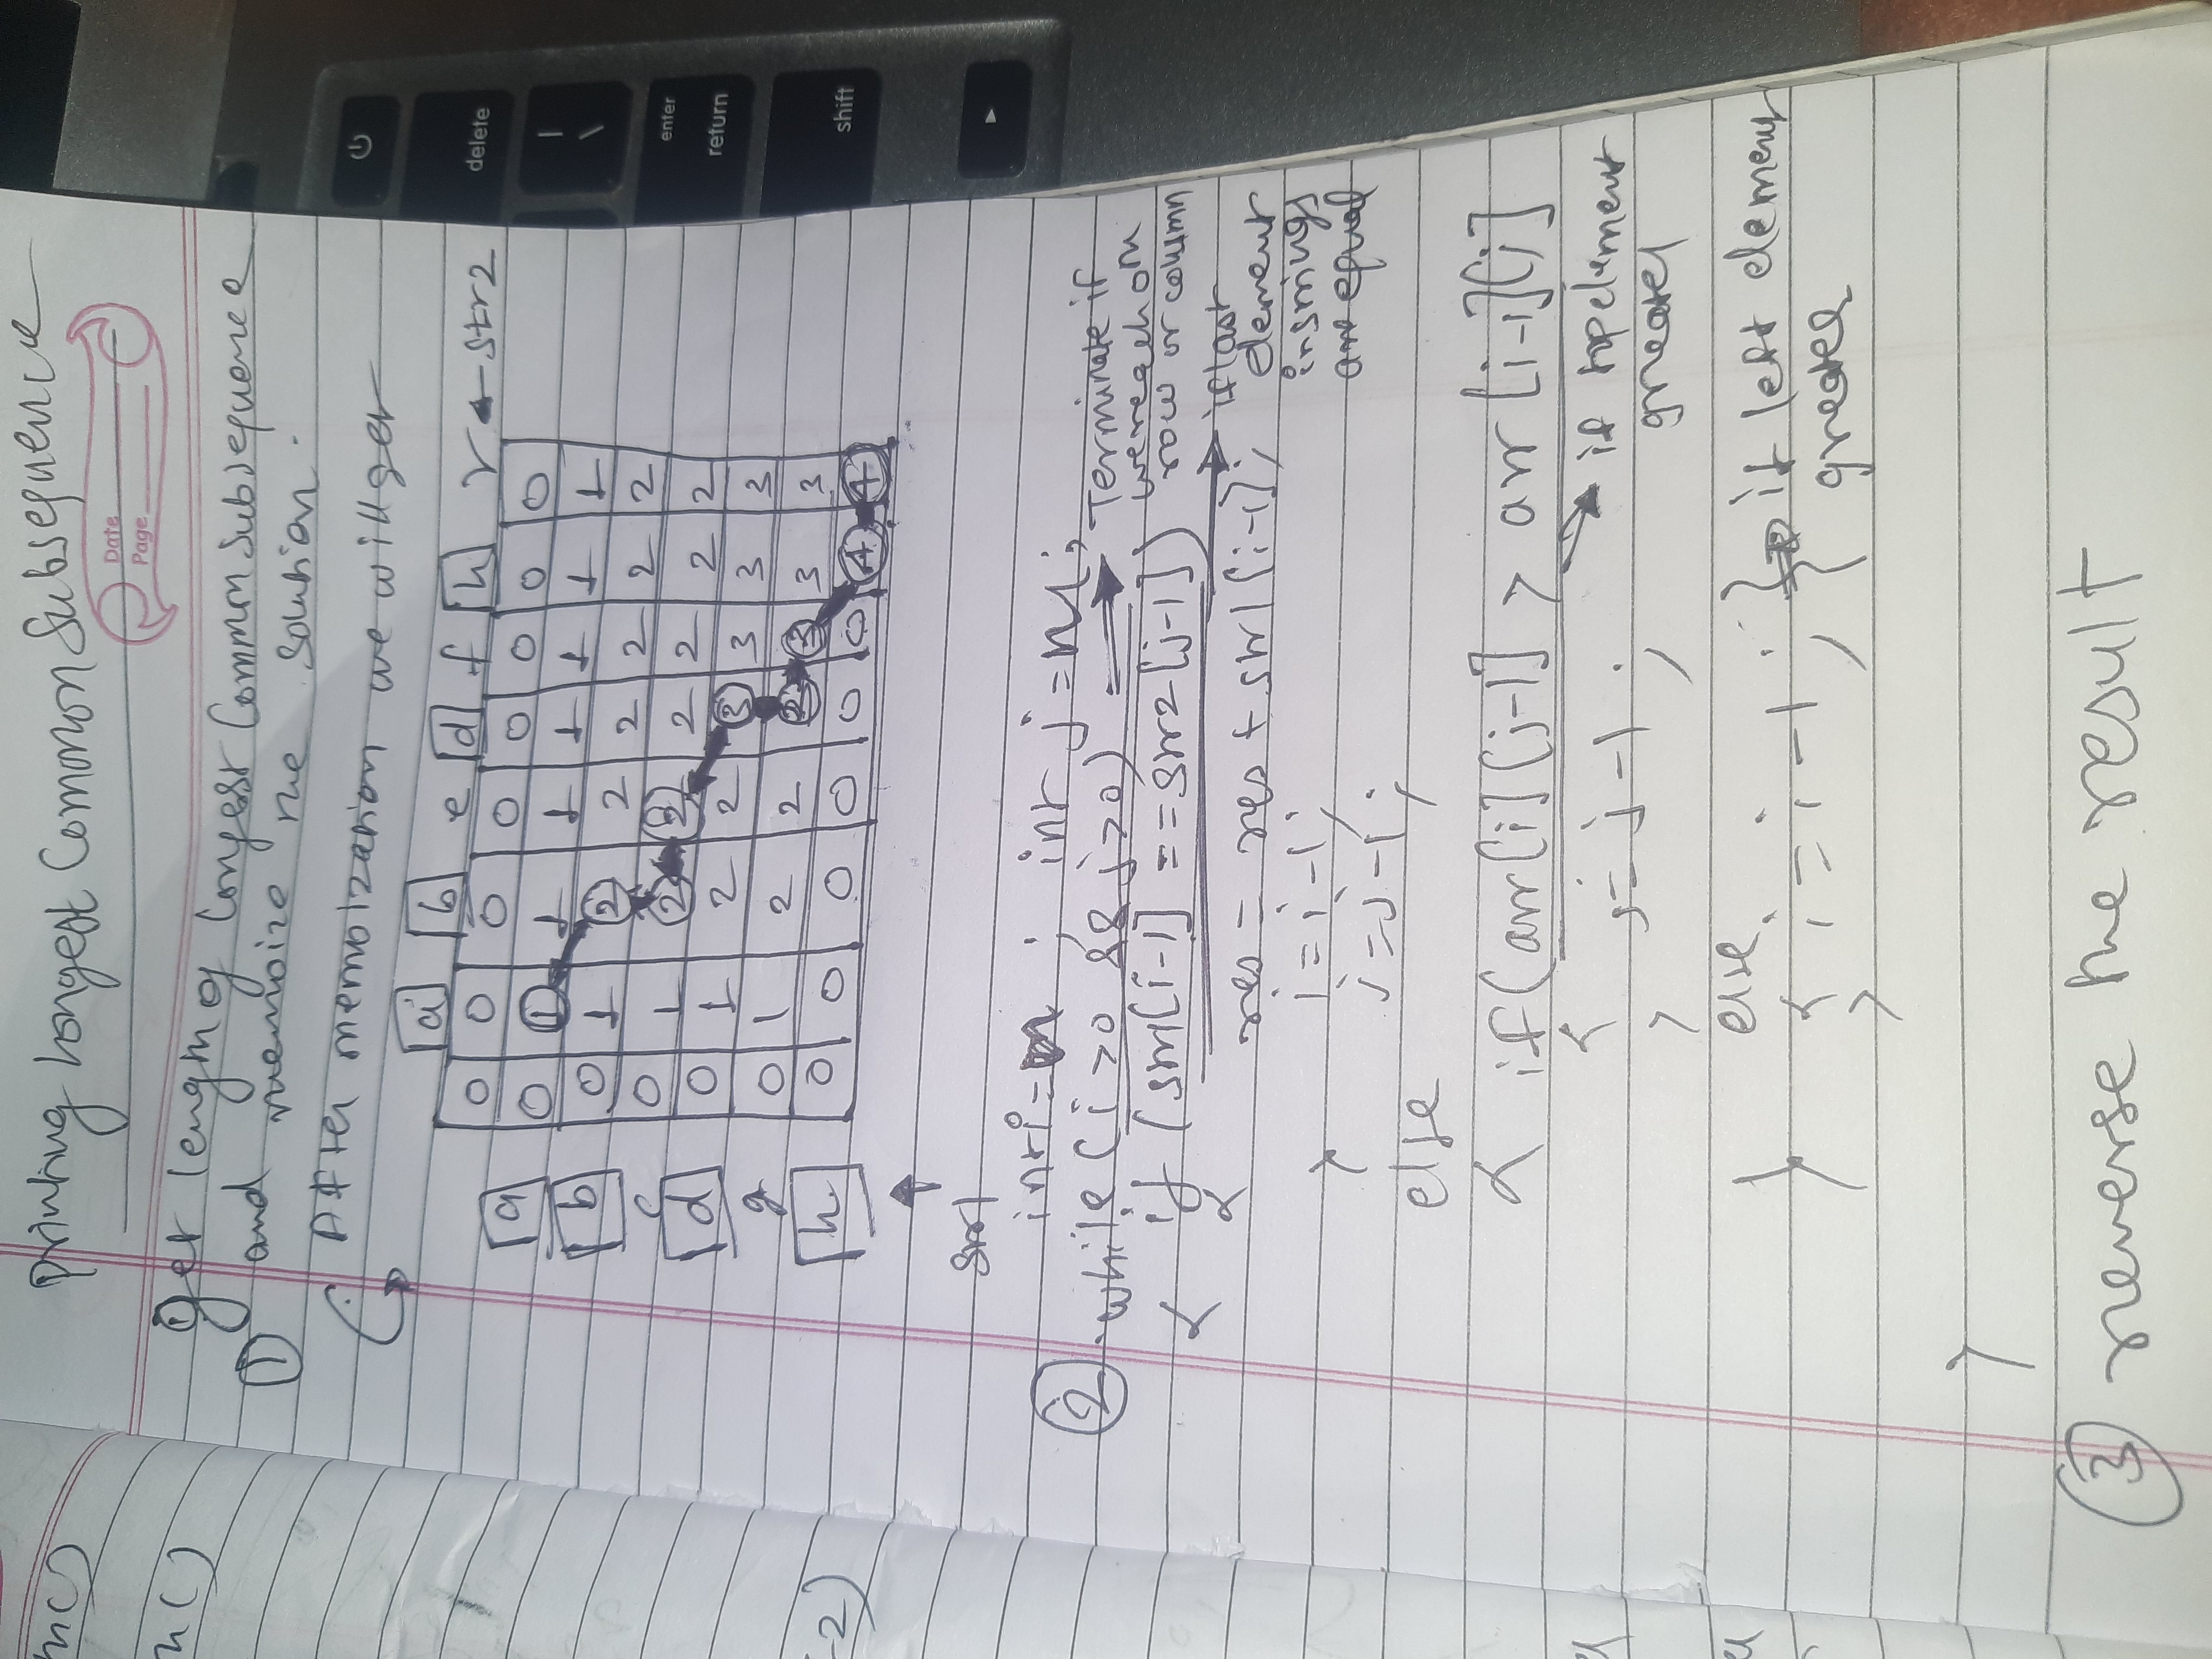 mc)
n()
-2)
printing Longest Common Subsequence
Date
Page
get length of longest Common Subsequence
① and memoize the solution.
After memoization we will get
a b e d f h r ← str2
0 0 0 0 0 0 0 0
a 0 1 1 1 1 1 1 1
b 0 1 2 2 2 2 2 2
c 0 1 2 2 2 2 2 2
d 0 1 2 2 3 3 3 3
g 0 1 2 2 2 3 3 3
h 0 0 0 0 0 0 4 4
str1
int i = m ; int j = n;
② while (i>0 && j>0) → Terminate if
we reach on
row or column
{ if (str1[i-1] == str2[j-1])
{ → if last
element
in strings
are equal
res = res + str1[i-1];
i = i-1;
} j = j-1;
else
{ if (arr[i][j-1] > arr[i-1][j]
{ → if top element
greater
j = j-1 ;
}
else
} { i = i-1 ; } → if left element
greater
}
}
③ reverse the result
delete
|
\
enter
return
shift